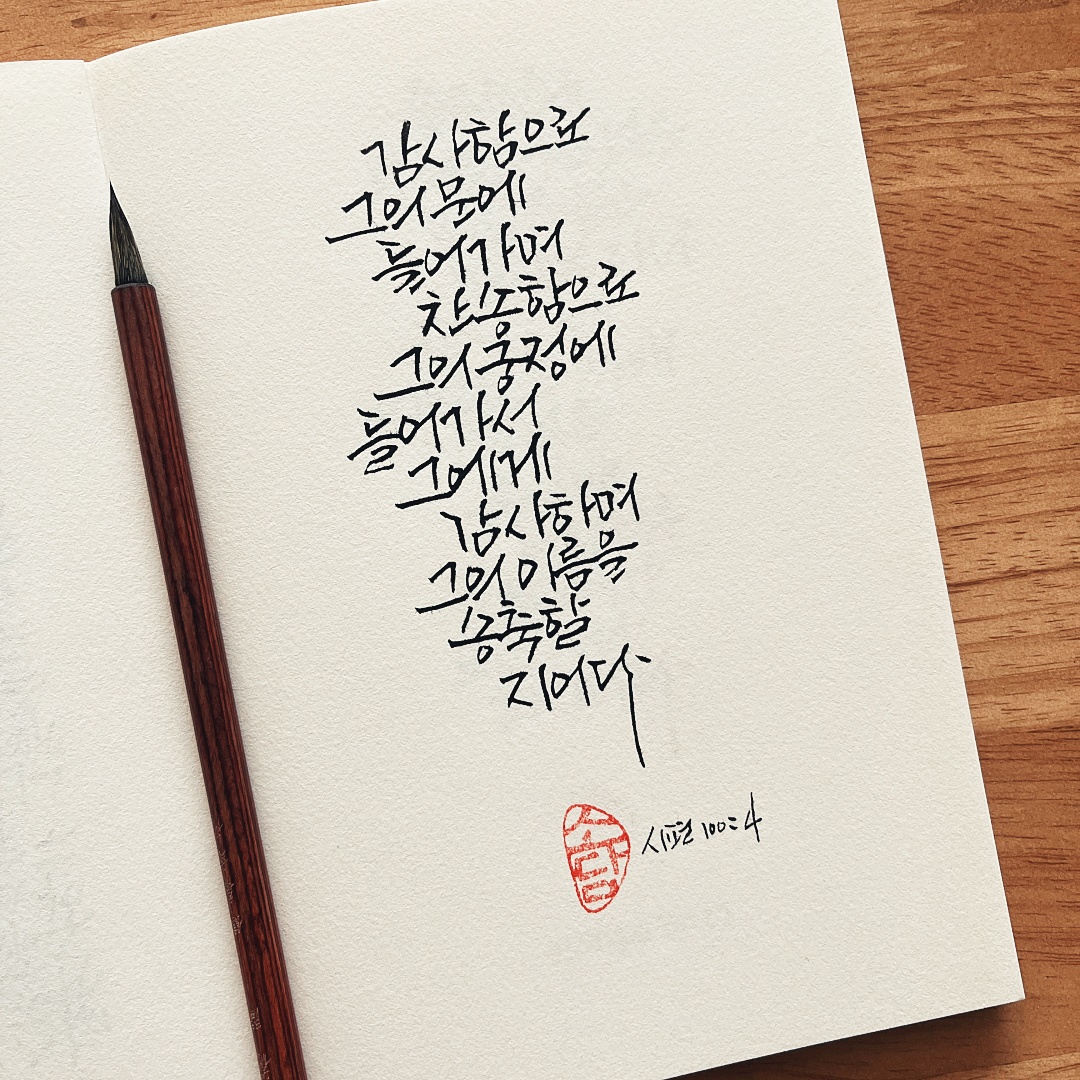 감사함으로
그의 문에
들어가며
찬송함으로
그의 궁정에
들어가서
그에게
감사하며
그의 이름을
송축할
지어다
시편 100:4